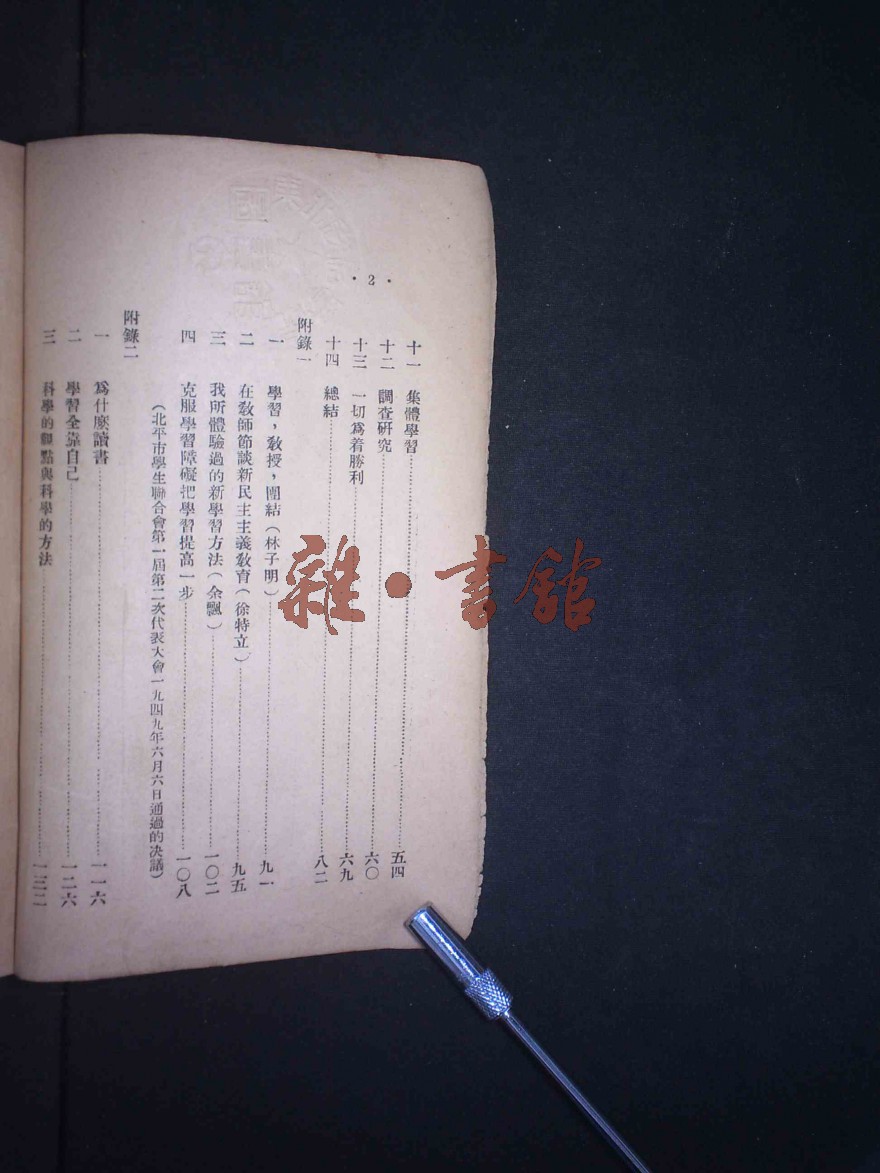 · 2 ·
十一 集體學習 五四
十二 調查研究 六〇
十三 一切爲着勝利 六九
十四 總結 八二
附錄一
一 學習，敎授，團結（林子明） 九一
二 在敎師節談新民主主義敎育（徐特立） 九五
三 我所體驗過的新學習方法（余飄） 一〇二
四 克服學習障礙把學習提高一步 一〇八
（北平市學生聯合會第一屆第二次代表大會一九四九年六月六日通過的决議）
附錄二
一 爲什麽讀書 一一六
二 學習全靠自己 一二六
三 科學的觀點與科學的方法 一三二
雜·書館